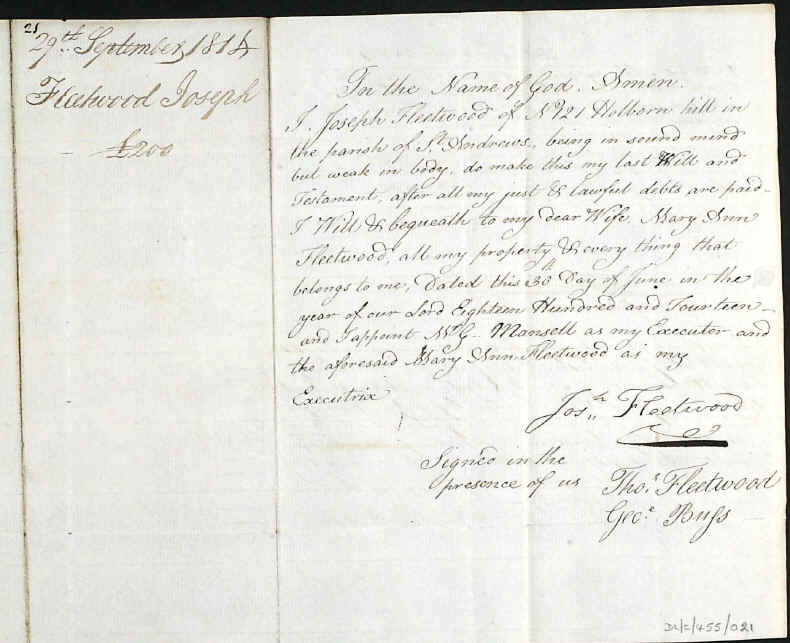 21
29th September 1814
Fleetwood Joseph
£200
In the Name of God. Amen.
I. Joseph Fleetwood of No 21 Holborn hill in
the parish of St Andrews, being in sound mind
but weak in body, do make this my last Will and
Testament, after all my just & lawful debts are paid-
I Will & bequeath to my dear Wife Mary Ann
Fleetwood, all my property & every thing that
belongs to me, Dated this 30th Day of June in the
year of our Lord Eighteen Hundred and Fourteen-
and I appoint Mr G- Mansell as my Executor and
the aforesaid Mary Ann Fleetwood as my
Executrix
Josh Fleetwood
Signed in the
presence of us
Thos Fleetwood
Geoe Buss
DL/C/455/021